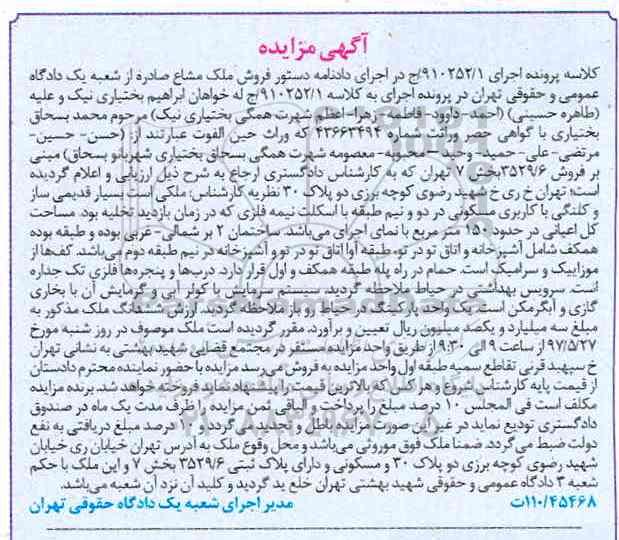 آگهی مزایده
کلاسه پرونده اجرای ۹۱۰۲۵۲/۱/ج در اجرای دادنامه دستور فروش ملک مشاع صادره از شعبه یک دادگاه
عمومی و حقوقی تهران در پرونده اجرای به کلاسه ۹۱۰۲۵۲/۱/ج له خواهان ابراهیم بختیاری نیک و علیه
(طاهره حسینی) (احمد- داوود- فاطمه- زهرا- اعظم شهرت همگی بختیاری نیک) مرحوم محمد بسحاق
بختیاری با گواهی حصر وراثت شماره ۴۳۶۶۳۴۹۴ که وراث حین الفوت عبارتند از: (حسن- حسین-
مرتضی- علی- حمید- وحید- محبوبه- معصومه شهرت همگی بسحاق بختیاری شهربانو بسحاق) مبنی
بر فروش ۳۵۲۹/۶بخش ۷ تهران که به کارشناس دادگستری ارجاع به شرح ذیل ارزیابی و اعلام گردیده
است؛ تهران خ ری خ شهید رضوی کوچه برزی دو پلاک ۳۰ نظریه کارشناس: ملکی است بسیار قدیمی ساز
و کلنگی با کاربری مسکونی در دو و نیم طبقه با اسکلت نیمه فلزی که در زمان بازدید تخلیه بود. مساحت
کل اعیانی در حدود ۱۵۰ متر مربع با نمای آجرای می‌باشد. ساختمان ۲ بر شمالی- غربی بوده و طبقه بوده
همکف شامل آشپزخانه و اتاق تو در تو، طبقه اول اتاق تو در تو و آشپزخانه در نیم طبقه دوم می‌باشد. کف‌ها از
موزاییک و سرامیک است. حمام در راه پله طبقه همکف و اول قرار دارد. درب‌ها و پنجره‌ها فلزی تک جداره
است. سرویس بهداشتی در حیاط ملاحظه گردید. سیستم سرمایش با کولر آبی و گرمایش آن با بخاری
گازی و آبگرمکن است. یک واحد پارکینگ در حیاط رو باز ملاحظه گردید. ارزش ششدانگ ملک مذکور به
مبلغ سه میلیارد و یکصد میلیون ریال تعیین و برآورد، مقرر گردیده است ملک موصوف در روز شنبه مورخ
۹۷/۵/۲۷ از ساعت ۹ الی ۹:۳۰ از طریق واحد مزایده مستقر در مجتمع قضایی شهید بهشتی به نشانی تهران
خ سپهبد قرنی تقاطع سمیه طبقه اول واحد مزایده به فروش می‌رسد مزایده با حضور نماینده محترم دادستان
از قیمت پایه کارشناس شروع و هر کس که بالاترین قیمت را پیشنهاد نماید فروخته خواهد شد. برنده مزایده
مکلف است فی المجلس ۱۰ درصد مبلغ را پرداخت و الباقی ثمن مزایده را ظرف مدت یک ماه در صندوق
دادگستری تودیع نماید در غیر این صورت مزایده باطل و تجدید می‌گردد و ۱۰ درصد مبلغ دریافتی به نفع
دولت ضبط می‌گردد. ضمنا ملک فوق موروثی می‌باشد و محل وقوع ملک به آدرس تهران خیابان ری خیابان
شهید رضوی کوچه برزی دو پلاک ۳۰ و مسکونی و دارای پلاک ثبتی ۳۵۲۹/۶ بخش ۷ و این ملک با حکم
شعبه ۳ دادگاه عمومی و حقوقی شهید بهشتی تهران خلع ید گردید و کلید آن نزد آن شعبه می‌باشد.
۱۱۰/۴۵۴۶۸ت مدیر اجرای شعبه یک دادگاه حقوقی تهران